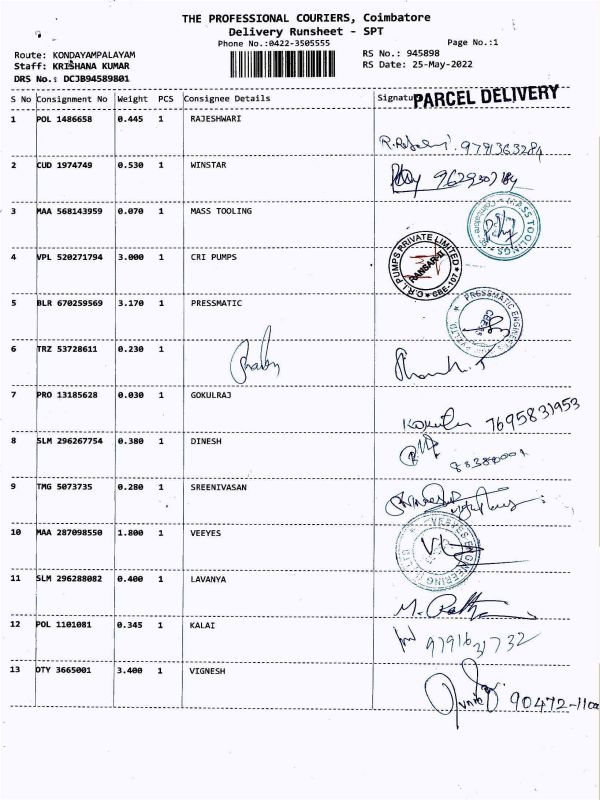 THE PROFESSIONAL COURIERS, Coimbatore
Delivery Runsheet - SPT
Phone No.:0422-3505555
Page No.:1
Route: KONDAYAMPALAYAM
RS No.: 945898
Staff: KRISHANA KUMAR
RS Date: 25-May-2022
DRS No.: DCJB94589801
S No Consignment No Weight PCS Consignee Details Signatu
PARCEL DELIVERY
1 POL 1486658 0.445 1 RAJESHWARI
9791363284
2 CUD 1974749 0.530 1 WINSTAR
3 MAA 568143959 0.070 1 MASS TOOLING
MASS TOOLINGS
4 VPL 520271794 3.000 1 CRI PUMPS
C.R.I. PUMPS PRIVATE LIMITED
RANSAR-II
CBE-107
5 BLR 670259569 3.170 1 PRESSMATIC
PRESSMATIC ENGINEER
6 TRZ 53728611 0.230 1
7 PRO 13185628 0.030 1 GOKULRAJ
7695831953
8 SLM 296267754 0.380 1 DINESH
9 TMG 5073735 0.280 1 SREENIVASAN
10 MAA 287098550 1.800 1 VEEYES
VEEYES ENGINEERING
11 SLM 296288082 0.400 1 LAVANYA
12 POL 1101081 0.345 1 KALAI
9791631732
13 DTY 3665001 3.400 1 VIGNESH
90472-110